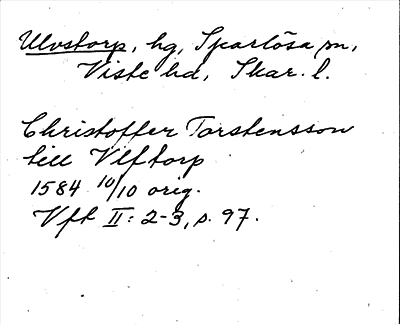 Ulvstorp, hg, Sparlösa sn,
Viste hd, Skar. l.
Christoffer Torstensson
till Vlftorp
1584 10/10 orig.
Vft II: 2-3, s. 97.